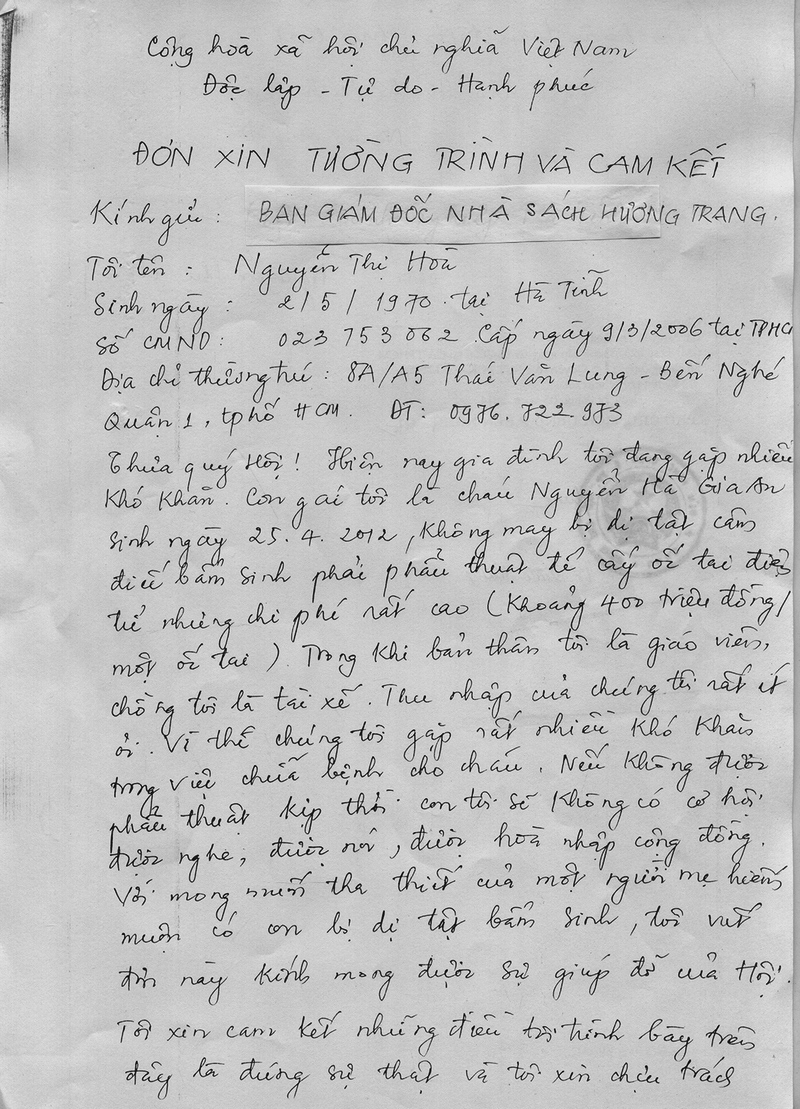 Cộng hoà xã hội chủ nghĩa Việt Nam
Độc lập - Tự do - Hạnh phúc
ĐƠN XIN TƯỜNG TRÌNH VÀ CAM KẾT
Kính gửi : BAN GIÁM ĐỐC NHÀ SÁCH HƯƠNG TRANG.
Tôi tên : Nguyễn Thị Hoà
Sinh ngày : 2/5/1970 tại Hà Tĩnh
Số CMND : 023 753 062 Cấp ngày 9/3/2006 tại TPHCM
Địa chỉ thường trú : 8A/A5 Thái Văn Lung - Bến Nghé
Quận 1, tphố HCM. ĐT: 0976.722.973
Thưa quý Hội ! Hiện nay gia đình tôi đang gặp nhiều
khó khăn. Con gái tôi là cháu Nguyễn Hà Gia An
sinh ngày 25.4.2012, không may bị dị tật câm
điếc bẩm sinh phải phẫu thuật để cấy ốc tai điện
tử nhưng chi phí rất cao (khoảng 400 triệu đồng/
một ốc tai). Trong khi bản thân tôi là giáo viên,
chồng tôi là tài xế. Thu nhập của chúng tôi rất ít
ỏi. Vì thế chúng tôi gặp rất nhiều khó khăn
trong việc chữa bệnh cho cháu. Nếu không được
phẫu thuật kịp thời con tôi sẽ không có cơ hội
được nghe, được nói, được hoà nhập cộng đồng.
Với mong muốn tha thiết của một người mẹ hiếm
muộn có con bị dị tật bẩm sinh, tôi viết
đơn này kính mong được sự giúp đỡ của Hội.
Tôi xin cam kết những điều tôi trình bày trên
đây là đúng sự thật và tôi xin chịu trách